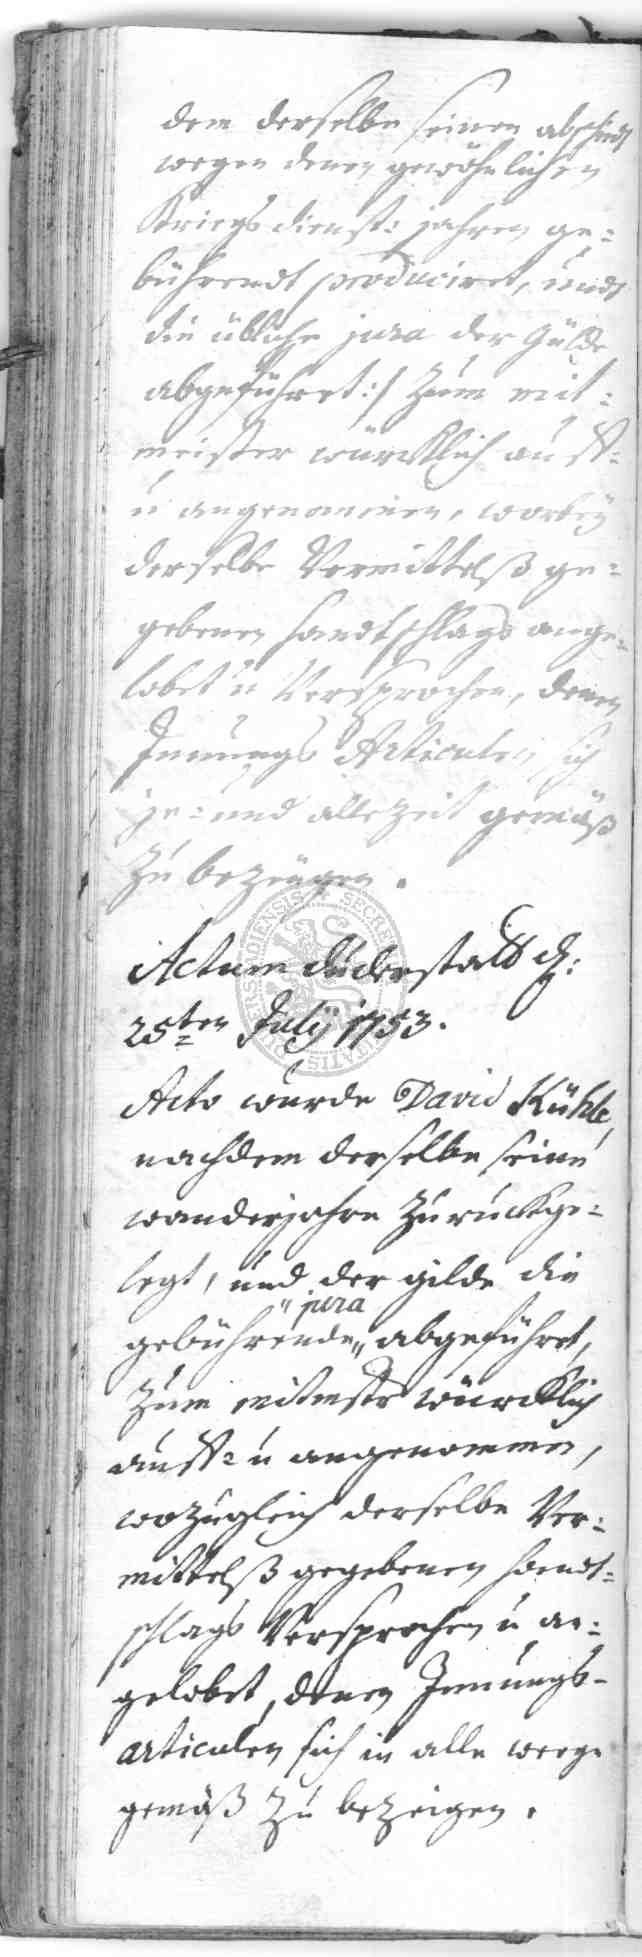 dem derselbe seinen abschiedt
wegen denen gewöhnlichen
Kriegs dienst: jahren ge:
bührendt produciret, undt
die übliche jura der Gülde
abgeführet :/ Zum mit:
meister würcklich auff:
u angenommen, worbey
derselbe Vermittelß ge:
gebenen handtschlags ange:
lobet u Versprochen, denen
Innungs Articulen sich
je: und allezeit gemäß
zu bezeugen.
Actum Duderstadt d:
25ten July 1753.
Acto wurde David Kühle,
nachdem derselbe seine
wanderjahre zurückge:
legt, und der gilde die
jura
gebührende abgeführet,
zum mitmstr würcklich
auff: u angenommen,
wozugleich derselbe Ver:
mittelß gegebenen handt:
schlags Versprochen u an:
gelobet, denen Innungs-
articulen sich in alle wege
gemäß zu bezeigen.